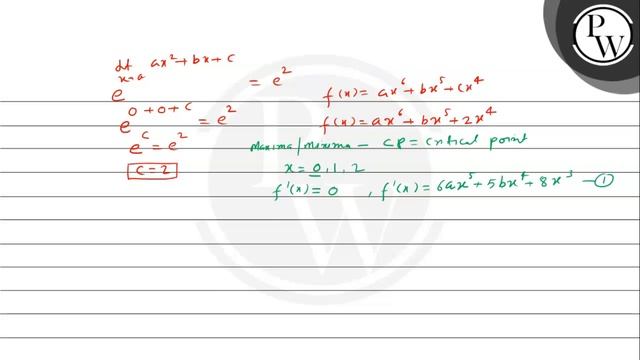 lt x→0 ax²+bx+c
e = e²
e^(0+0+c) = e²
e^c = e²
c = 2
f(x) = ax⁶+bx⁵+cx⁴
f(x) = ax⁶+bx⁵+2x⁴
Maxima/Minima – CP = Critical point
x = 0, 1, 2
f'(x) = 0 , f'(x) = 6ax⁵+5bx⁴+8x³ —①
PW